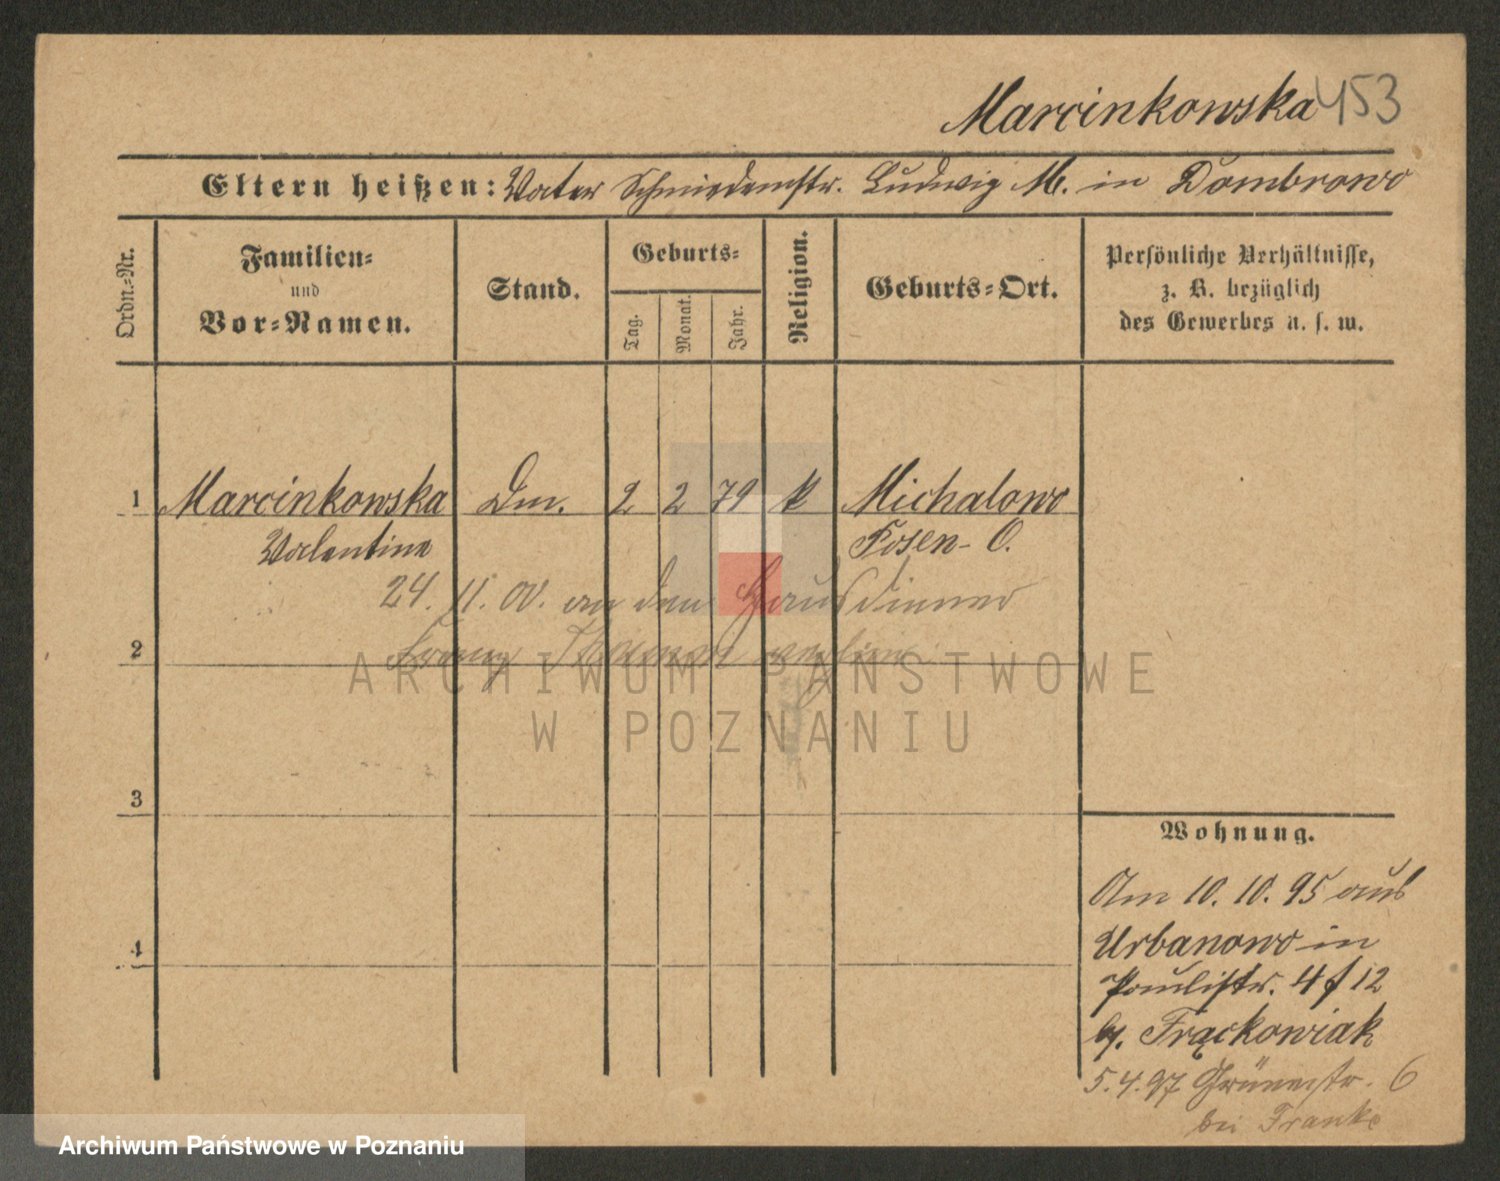 Marcinkowska 453
Eltern heißen: Vater Schmiedemstr. Ludwig M. in Dombrowo
Ordn.-Nr.
Familien-
und
Vor-Namen.
Stand.
Geburts-
Tag.
Monat.
Jahr.
Religion.
Geburts-Ort.
Persönliche Verhältnisse,
z. B. bezüglich
des Gewerbes u. s. w.
1 Marcinkowska Dm. 2 2 79 k Michalowo
Valentine Posen-O.
24. 11. 00. an den Hausdiener
2 Franz
ARCHIWUM PAŃSTWOWE
W POZNANIU
3
Wohnung.
Am 10. 10. 95 aus
4 Urbanowo in
Paulistr. 4 f 12
bj. Frąckowiak
5.4.97 Grünestr. 6
bei Franke
Archiwum Państwowe w Poznaniu